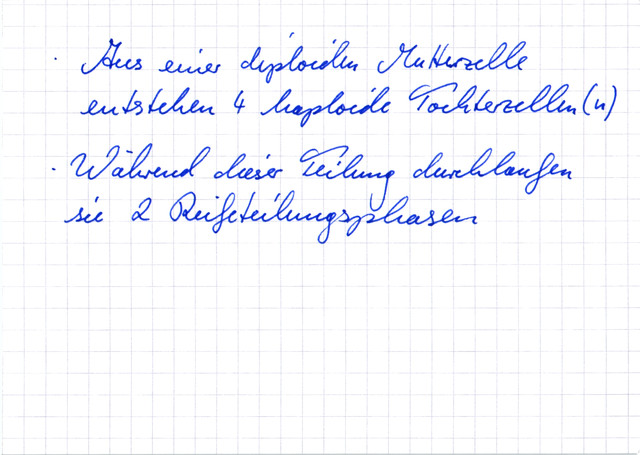 · Aus einer diploiden Mutterzelle
entstehen 4 haploide Tochterzellen (n)
· Während dieser Teilung durchlaufen
sie 2 Reifeteilungsphasen